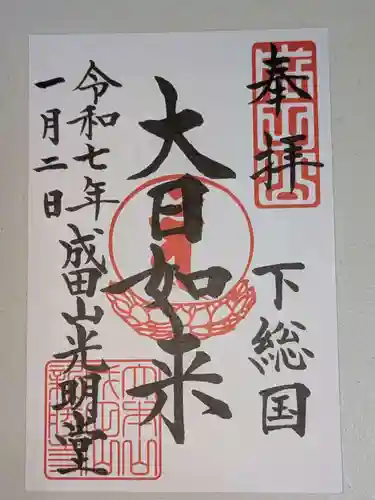 奉拝
下総国
大日如来
令和七年
一月二日
成田山光明堂